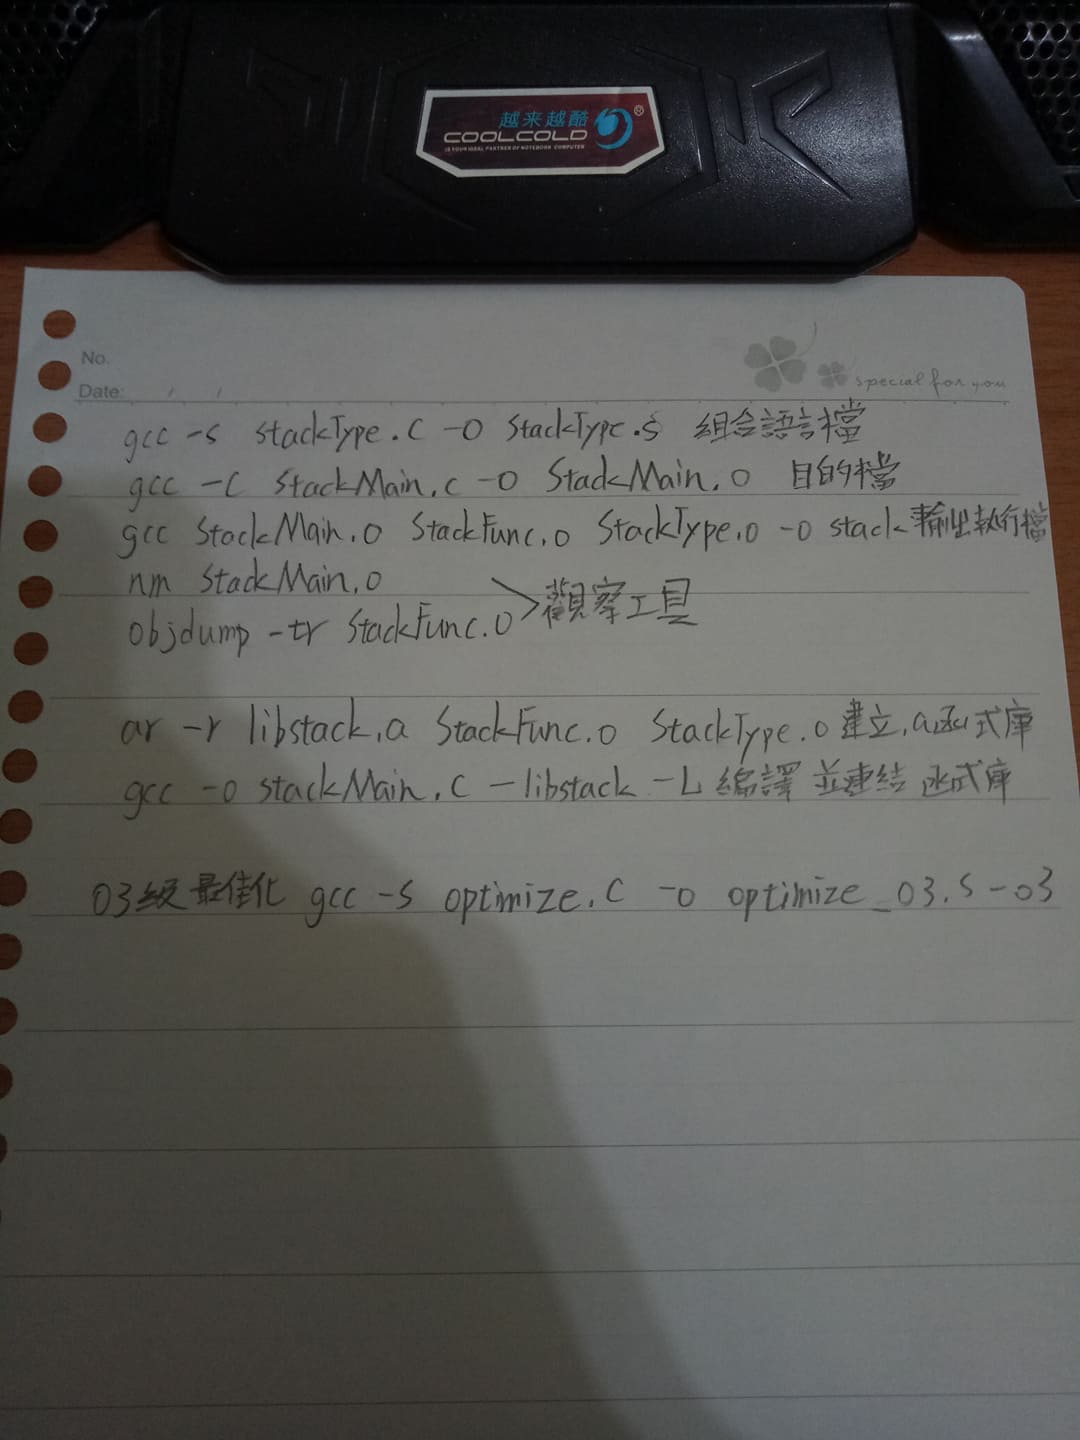 越来越酷 ®
COOLCOLD
IS YOUR IDEAL PARTNER OF NOTEBOOK COMPUTER
No.
Date: / /
special for you
gcc -S StackType.c -o StackType.s 組合語言檔
gcc -c StackMain.c -o StackMain.o 目的檔
gcc StackMain.o StackFunc.o StackType.o -o stack 輸出執行檔
nm StackMain.o
objdump -tr StackFunc.o > 觀察工具
ar -r libstack.a StackFunc.o StackType.o 建立.a函式庫
gcc -o stackMain.c -libstack -L 編譯並連結函式庫
O3級最佳化 gcc -S optimize.c -o optimize_O3.s -O3